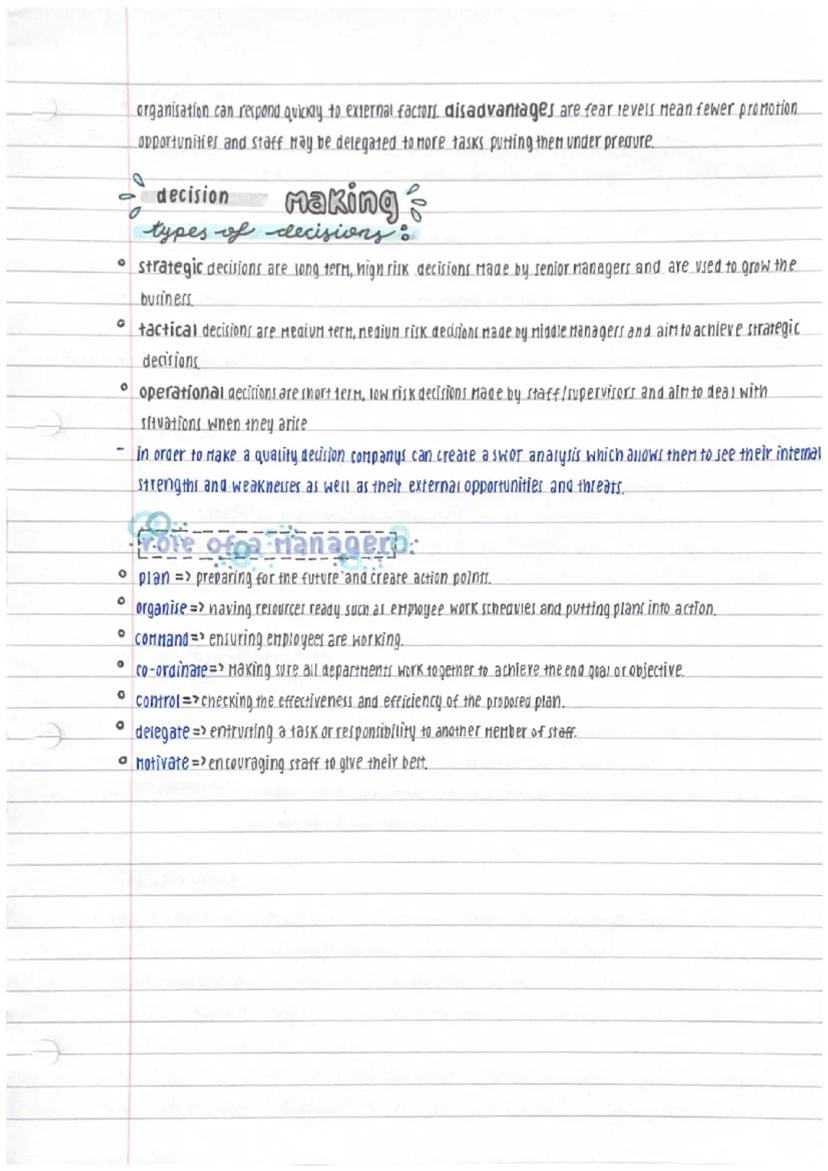 organisation can respond quickly to external factors. disadvantages are fear levels mean fewer promotion
opportunities and staff may be delegated to more tasks putting them under preaure.
decision making
types of decisions:
strategic decisions are long term, high risk decisions made by senior managers and are used to grow the
business.
tactical decisions are medium term, medium risk decisions made by middle managers and aim to achieve strategic
decisions.
operational decisions are short term, low risk decisions made by staff/supervisors and aim to deal with
situations when they arise
- in order to make a quality decision companys can create a swot analysis which allows them to see their internal
strengths and weaknesses as well as their external opportunities and threats.
role of a manager:
plan => preparing for the future and create action points.
organise => having resources ready such as employee work schedules and putting plans into action.
command => ensuring employees are working.
co-ordinate => making sure all departments work together to achieve the end goal or objective.
control => checking the effectiveness and efficiency of the proposed plan.
delegate => entrusting a task or responsibility to another member of staff.
motivate => encouraging staff to give their best.